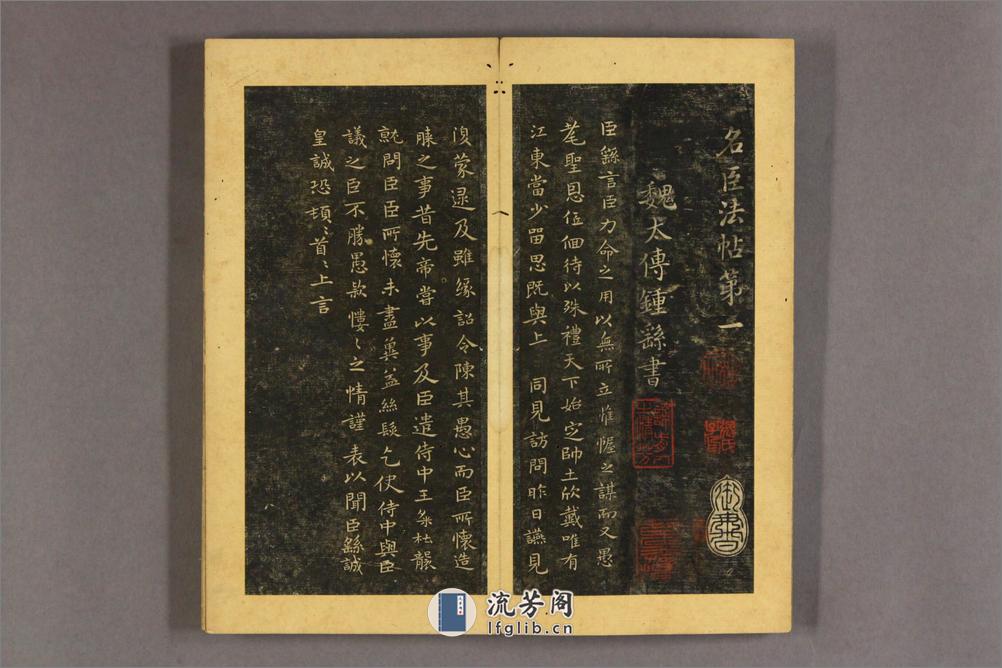 名臣法帖第一
魏太傅鍾繇書
臣繇言臣力命之用以無所立惟幄之謀而又愚
耄聖恩低佪待以殊禮天下始定帥土欣戴唯有
江東當少留思既與上 同見訪問昨日疏見
復蒙逮及雖緣詔令陳其愚心而臣所懷造
膝之事昔先帝嘗以事及臣遣侍中王粲杜襲
就問臣臣所懷未盡冀益絲髮乞使侍中與臣
議之臣不勝愚款慺〻之情謹表以聞臣繇誠
皇誠恐頓〻首〻上言
流芳阁
lfglib.cn